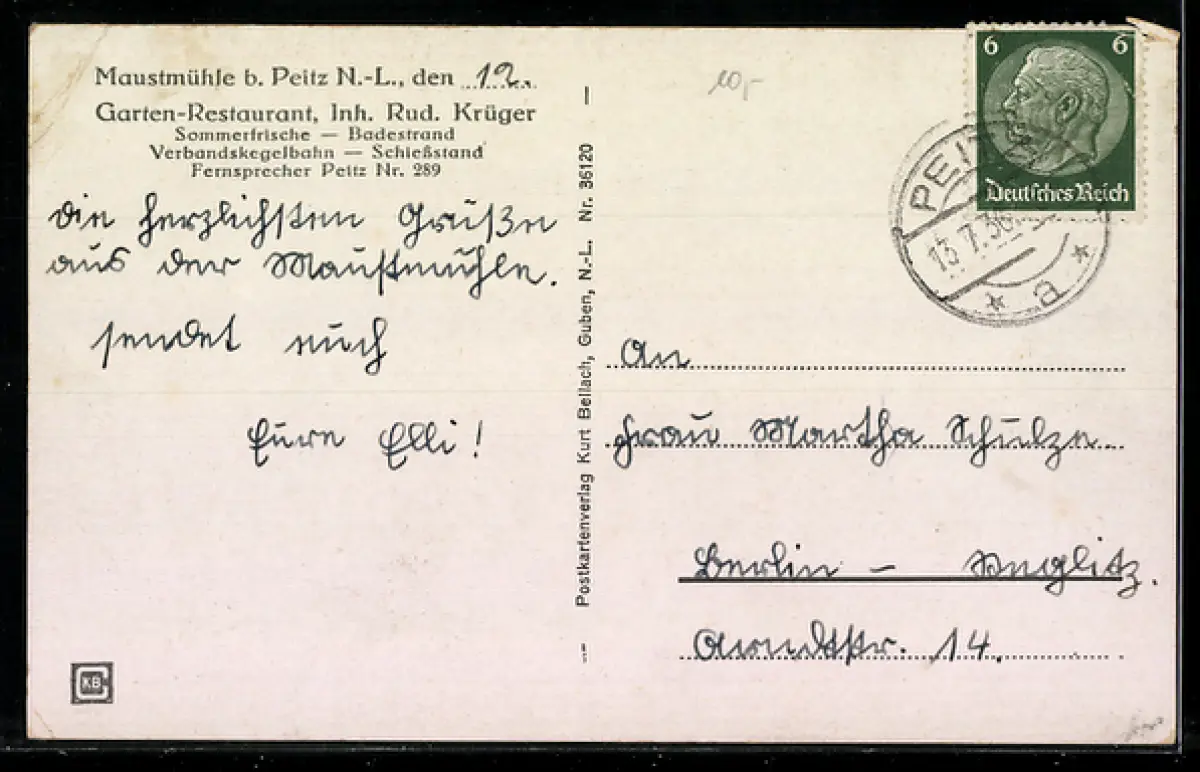 Maustmühle b. Peitz N.-L., den 12.
Garten-Restaurant, Inh. Rud. Krüger
Sommerfrische — Badestrand
Verbandskegelbahn — Schießstand
Fernsprecher Peitz Nr. 289
Die herzlichsten Grüße
aus der Maustmühle.
sendet euch
Eure Elli!
KB
Postkartenverlag Kurt Bellach, Guben, N.-L. Nr. 36120
10,-
6 6
Deutsches Reich
PEITZ
13.7.36.
a
An
Frau Martha Schulze
Berlin – Steglitz.
Arndtstr. 14.